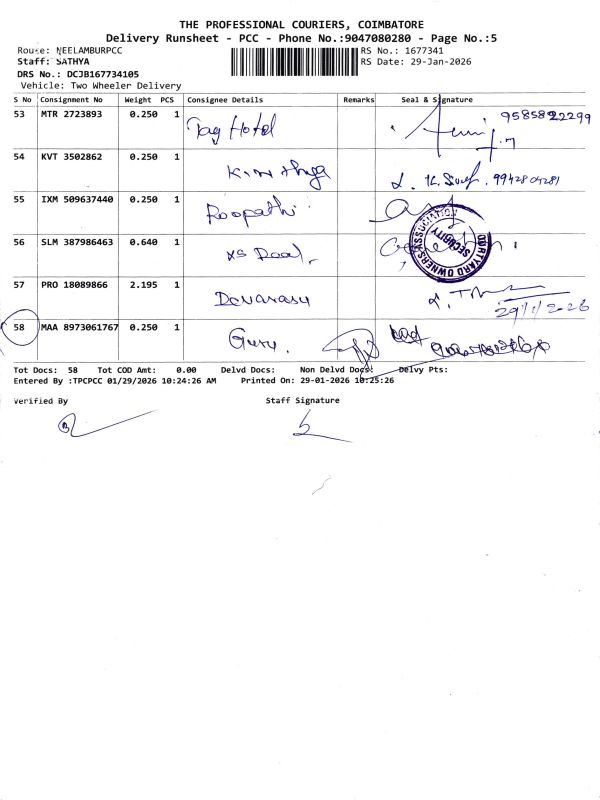 THE PROFESSIONAL COURIERS, COIMBATORE
Delivery Runsheet - PCC - Phone No.:9047080280 - Page No.:5
Route: NEELAMBURPCC
RS No.: 1677341
Staff: SATHYA
RS Date: 29-Jan-2026
DRS No.: DCJB167734105
Vehicle: Two Wheeler Delivery
S No Consignment No Weight PCS Consignee Details Remarks Seal & Signature
53 MTR 2723893 0.250 1 Tag Hotel 9585822299
54 KVT 3502862 0.250 1
55 IXM 509637440 0.250 1 Roopathi
56 SLM 387986463 0.640 1
COURTYARD OWNERS ASSOCIATION
SECURITY
57 PRO 18089866 2.195 1 Devarasu
29/1/2026
58 MAA 8973061767 0.250 1 Guru.
Tot Docs: 58 Tot COD Amt: 0.00 Delvd Docs: Non Delvd Docs: Delvy Pts:
Entered By :TPCPCC 01/29/2026 10:24:26 AM Printed On: 29-01-2026 10:25:26
Verified By Staff Signature